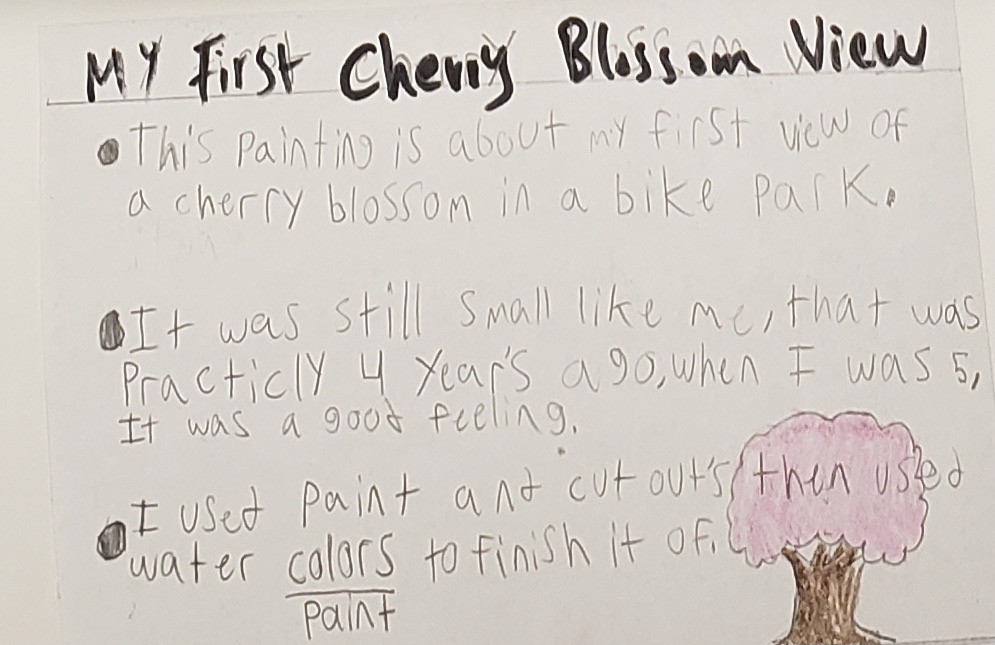 My First Cherry Blossom View
• This painting is about my first view of
a cherry blossom in a bike park.
• It was still small like me, that was
Practicly 4 Year's ago, when I was 5,
It was a good feeling.
• I used paint and cut out's then used
water colors to finish it of.
paint